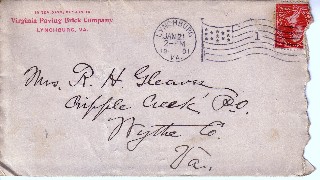 Virginia Paving Brick Company
LYNCHBURG, VA.
LYNCHBURG,
JAN 21
2-PM
VA.
1
Mrs. R. H. Gleaves
Cripple Creek P.O.
Wythe Co.
Va.